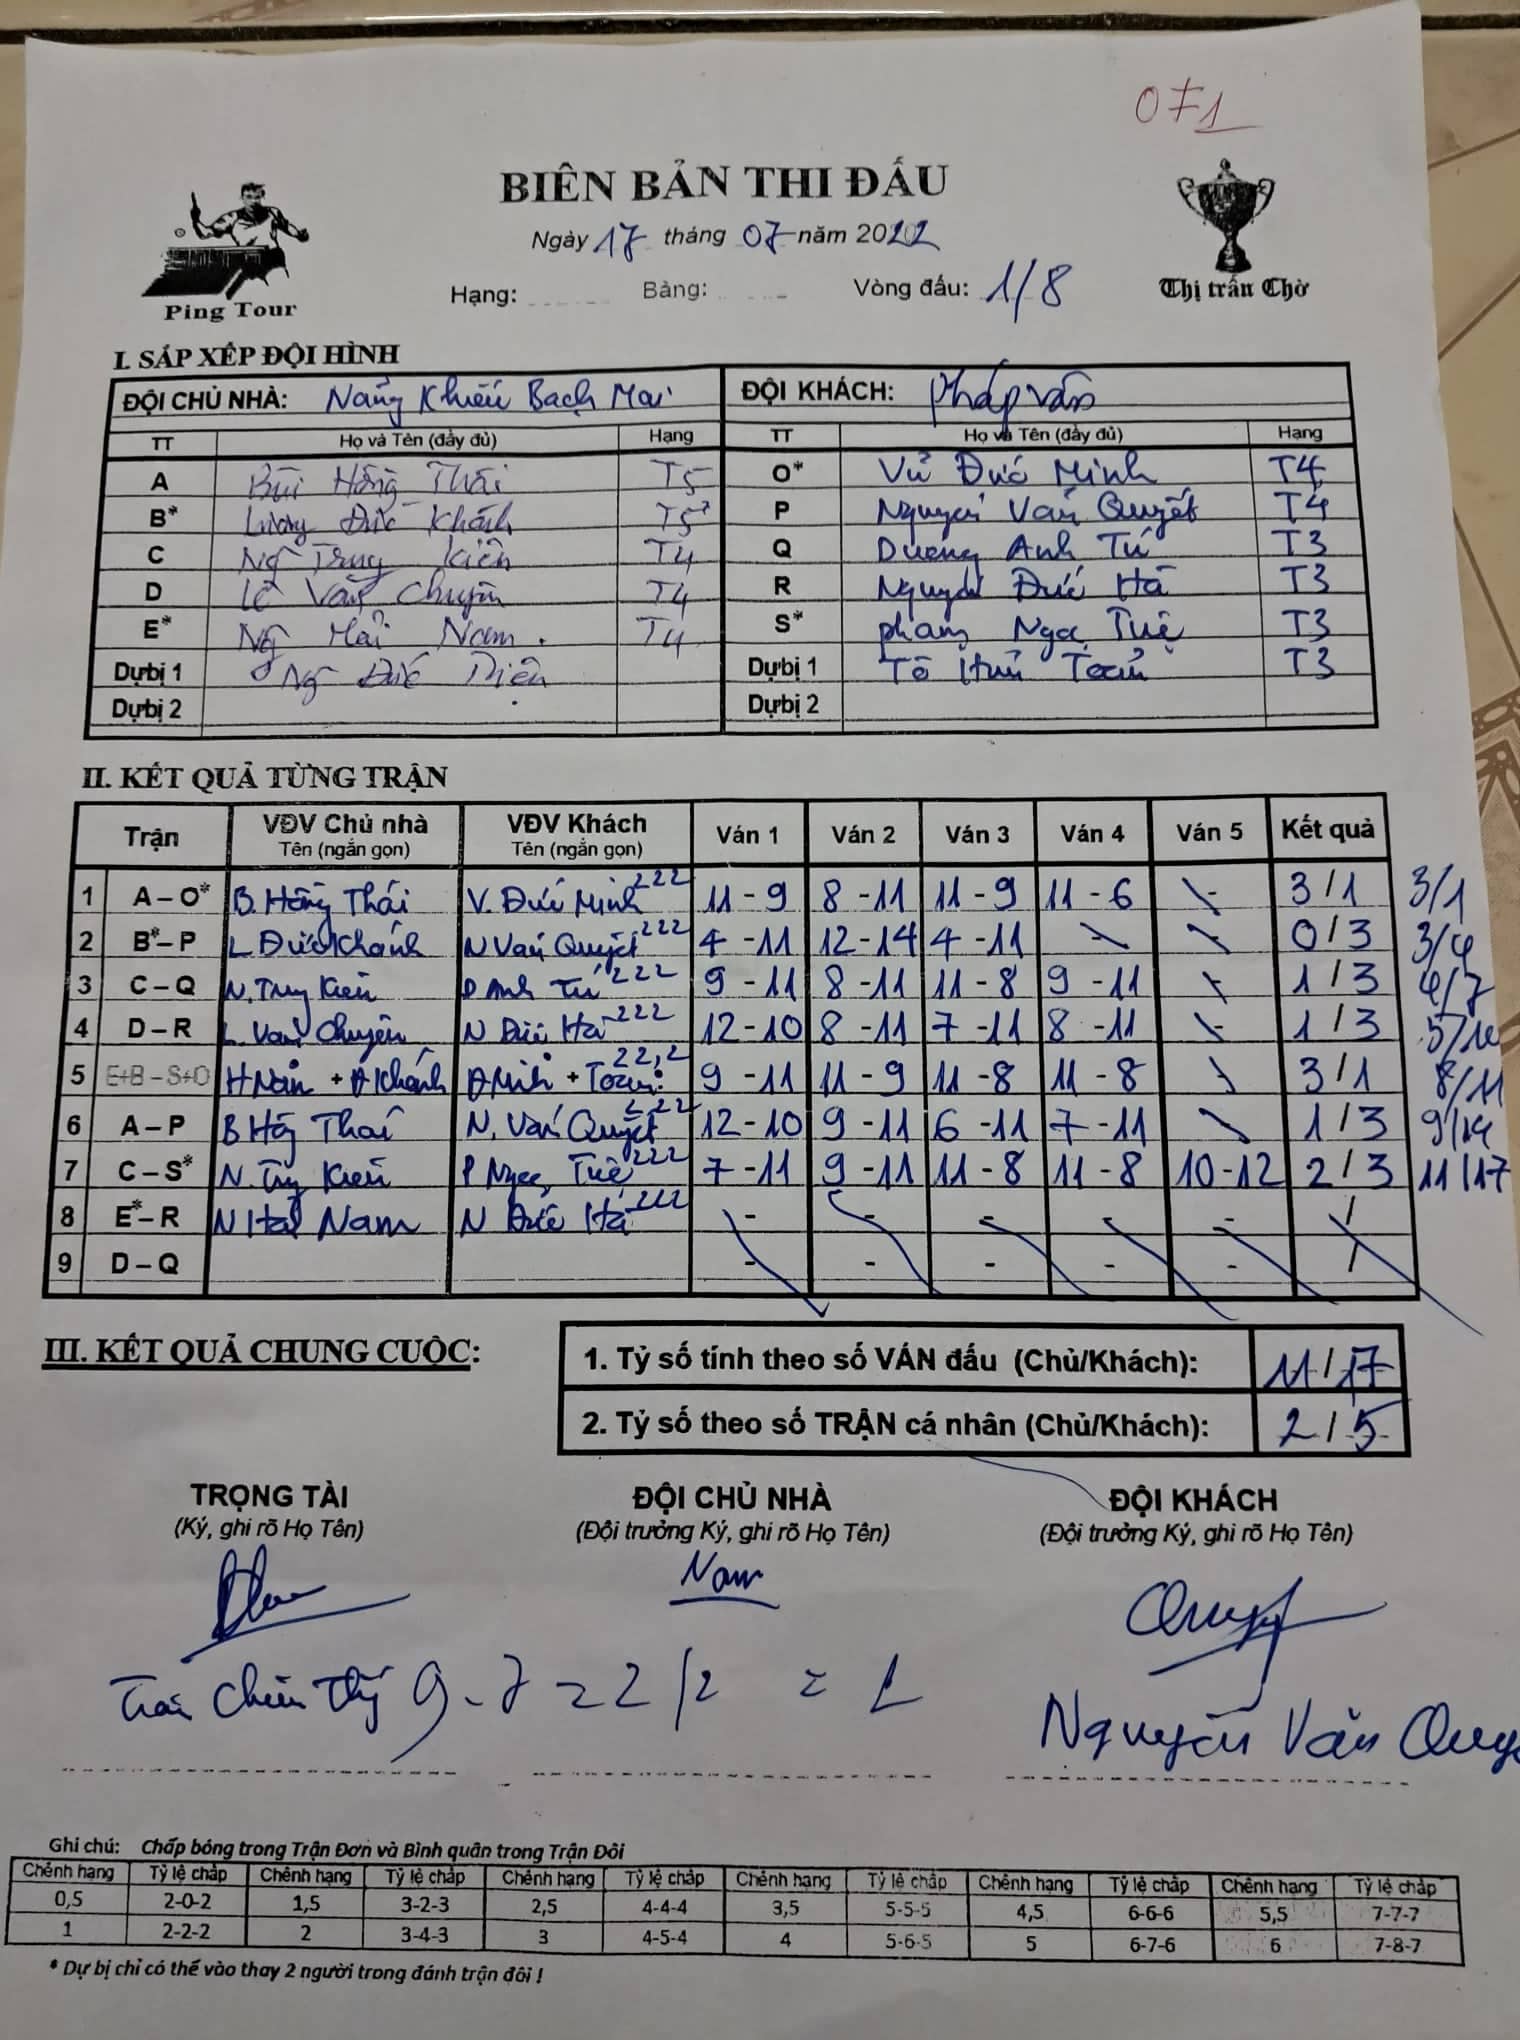 071
BIÊN BẢN THI ĐẤU
Ngày 17 tháng 07 năm 2022
Hạng: Bảng: Vòng đấu: 1/8
Ping Tour
Thị trấn Chờ
I. SẮP XẾP ĐỘI HÌNH
ĐỘI CHỦ NHÀ: Năng Khiếu Bạch Mai ĐỘI KHÁCH: Pháp Vân
TT Họ và Tên (đầy đủ) Hạng TT Họ và Tên (đầy đủ) Hạng
A Bùi Hồng Thái T5 O* Vũ Đức Minh T4
B* Lương Đức Khánh T5 P Nguyễn Văn Quyết T4
C Ng Trung Kiên T4 Q Dương Anh Tú T3
D Lê Văn Chuyên T4 R Nguyễn Đức Hà T3
E* Ng Hải Nam. T4 S* Phạm Ngọc Tuệ T3
Dự bị 1 Ng Đức Dự bị 1 Tô Hữu Toàn T3
Dự bị 2 Dự bị 2
II. KẾT QUẢ TỪNG TRẬN
Trận VĐV Chủ nhà VĐV Khách Ván 1 Ván 2 Ván 3 Ván 4 Ván 5 Kết quả
Tên (ngắn gọn) Tên (ngắn gọn)
1 A – O* B. Hồng Thái V. Đức Minh 222 11 - 9 8 - 11 11 - 9 11 - 6 - 3 / 1 3/1
2 B* – P L Đức Khánh N Văn Quyết 222 4 - 11 12 - 14 4 - 11 - - 0 / 3 3/4
3 C – Q N. Trug Kiên D Anh Tú 222 9 - 11 8 - 11 11 - 8 9 - 11 - 1 / 3 4/7
4 D – R L. Văn Chuyên N Đức Hà 222 12 - 10 8 - 11 7 - 11 8 - 11 - 1 / 3 5/10
5 E+B – S+O H Nam + Đ Khánh Đ Minh + Toàn 22,2 9 - 11 11 - 9 11 - 8 11 - 8 - 3 / 1 8/11
6 A – P B Hồg Thái N. Văn Quyết 222 12 - 10 9 - 11 6 - 11 7 - 11 - 1 / 3 9/14
7 C – S* N. Trg Kiên P Ngọc Tuệ 222 7 - 11 9 - 11 11 - 8 11 - 8 10 - 12 2 / 3 11/17
8 E* – R N Hải Nam N Đức Hà 222 - - - - - /
9 D – Q - - - - - /
III. KẾT QUẢ CHUNG CUỘC:
1. Tỷ số tính theo số VÁN đấu (Chủ/Khách): 11/17
2. Tỷ số theo số TRẬN cá nhân (Chủ/Khách): 2/5
TRỌNG TÀI ĐỘI CHỦ NHÀ ĐỘI KHÁCH
(Ký, ghi rõ Họ Tên) (Đội trưởng Ký, ghi rõ Họ Tên) (Đội trưởng Ký, ghi rõ Họ Tên)
Nam
9 - 7 = 2/2 = 1
Nguyễn Văn Quy
Ghi chú: Chấp bóng trong Trận Đơn và Bình quân trong Trận Đôi
Chênh hạng Tỷ lệ chấp Chênh hạng Tỷ lệ chấp Chênh hạng Tỷ lệ chấp Chênh hạng Tỷ lệ chấp Chênh hạng Tỷ lệ chấp Chênh hạng Tỷ lệ chấp
0,5 2-0-2 1,5 3-2-3 2,5 4-4-4 3,5 5-5-5 4,5 6-6-6 5,5 7-7-7
1 2-2-2 2 3-4-3 3 4-5-4 4 5-6-5 5 6-7-6 6 7-8-7
* Dự bị chỉ có thể vào thay 2 người trong đánh trận đôi !